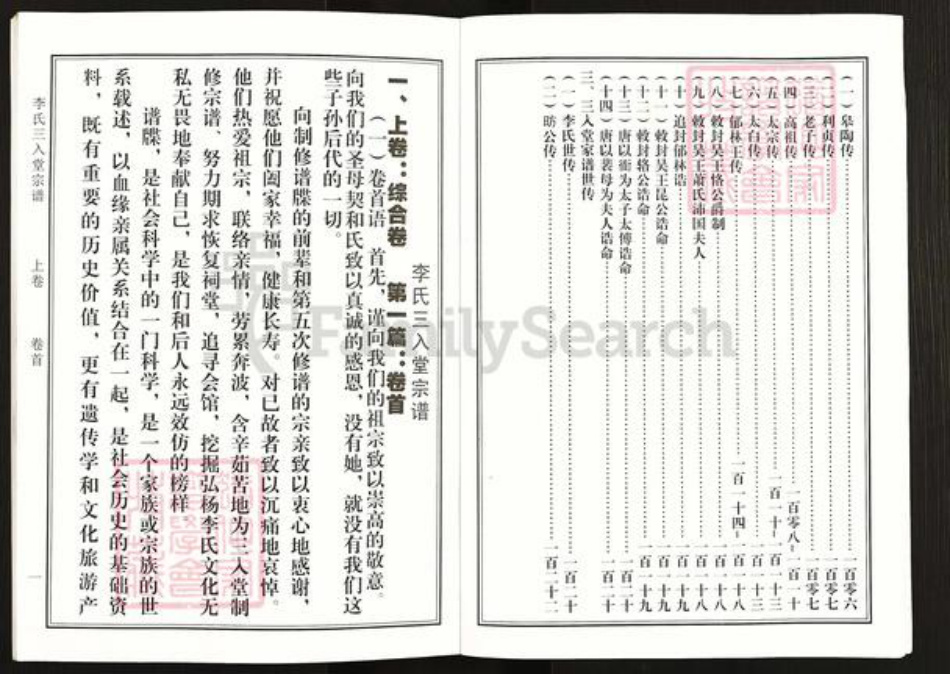 (一) 皋陶传 一百零六
(二) 利贞传 一百零七
(三) 老子传 一百零七
(四) 高祖传 一百零八－一百一十
(五) 太宗传 一百一十－一百一十三
(六) 太白传 一百一十三
(七) 郁林王传 一百一十四－一百一十八
(八) 敕封吴王恪公爵制 一百一十八
(九) 敕封吴王萧氏沛国夫人 一百一十八
(十) 追封郁林诰 一百一十九
(十一) 敕封吴王昆公诰命 一百一十九
(十二) 敕封辂公诰命 一百一十九
(十三) 唐以衙为太子太傅诰命 一百二十
(十四) 唐以裴母为夫人诰命 一百二十
三、三入堂家谱世传
(一) 李氏世传 一百二十
(二) 昉公传 一百二十二
李氏三入堂宗谱
一、上卷：综合卷 第一篇：卷首
(一) 卷首语 首先，谨向我们的祖宗致以崇高的敬意。
向我们的圣母契和氏致以真诚的感恩，没有她，就没有我们这
些子孙后代的一切。
向制修谱牒的前辈和第五次修谱的宗亲致以衷心地感谢，
并祝愿他们阖家幸福，健康长寿，对已故者致以沉痛地哀悼。
他们热爱祖宗，联络亲情，劳累奔波，含辛茹苦地为三入堂制
修宗谱、努力期求恢复祠堂，追寻会馆，挖掘弘杨李氏文化无
私无畏地奉献自己，是我们和后人永远效仿的榜样
谱牒，是社会科学中的一门科学，是一个家族或宗族的世
系载述，以血缘亲属关系结合在一起，是社会历史的基础资
料，既有重要的历史价值，更有遗传学和文化旅游产
李氏三入堂宗谱 上卷 卷首 一
FamilySearch